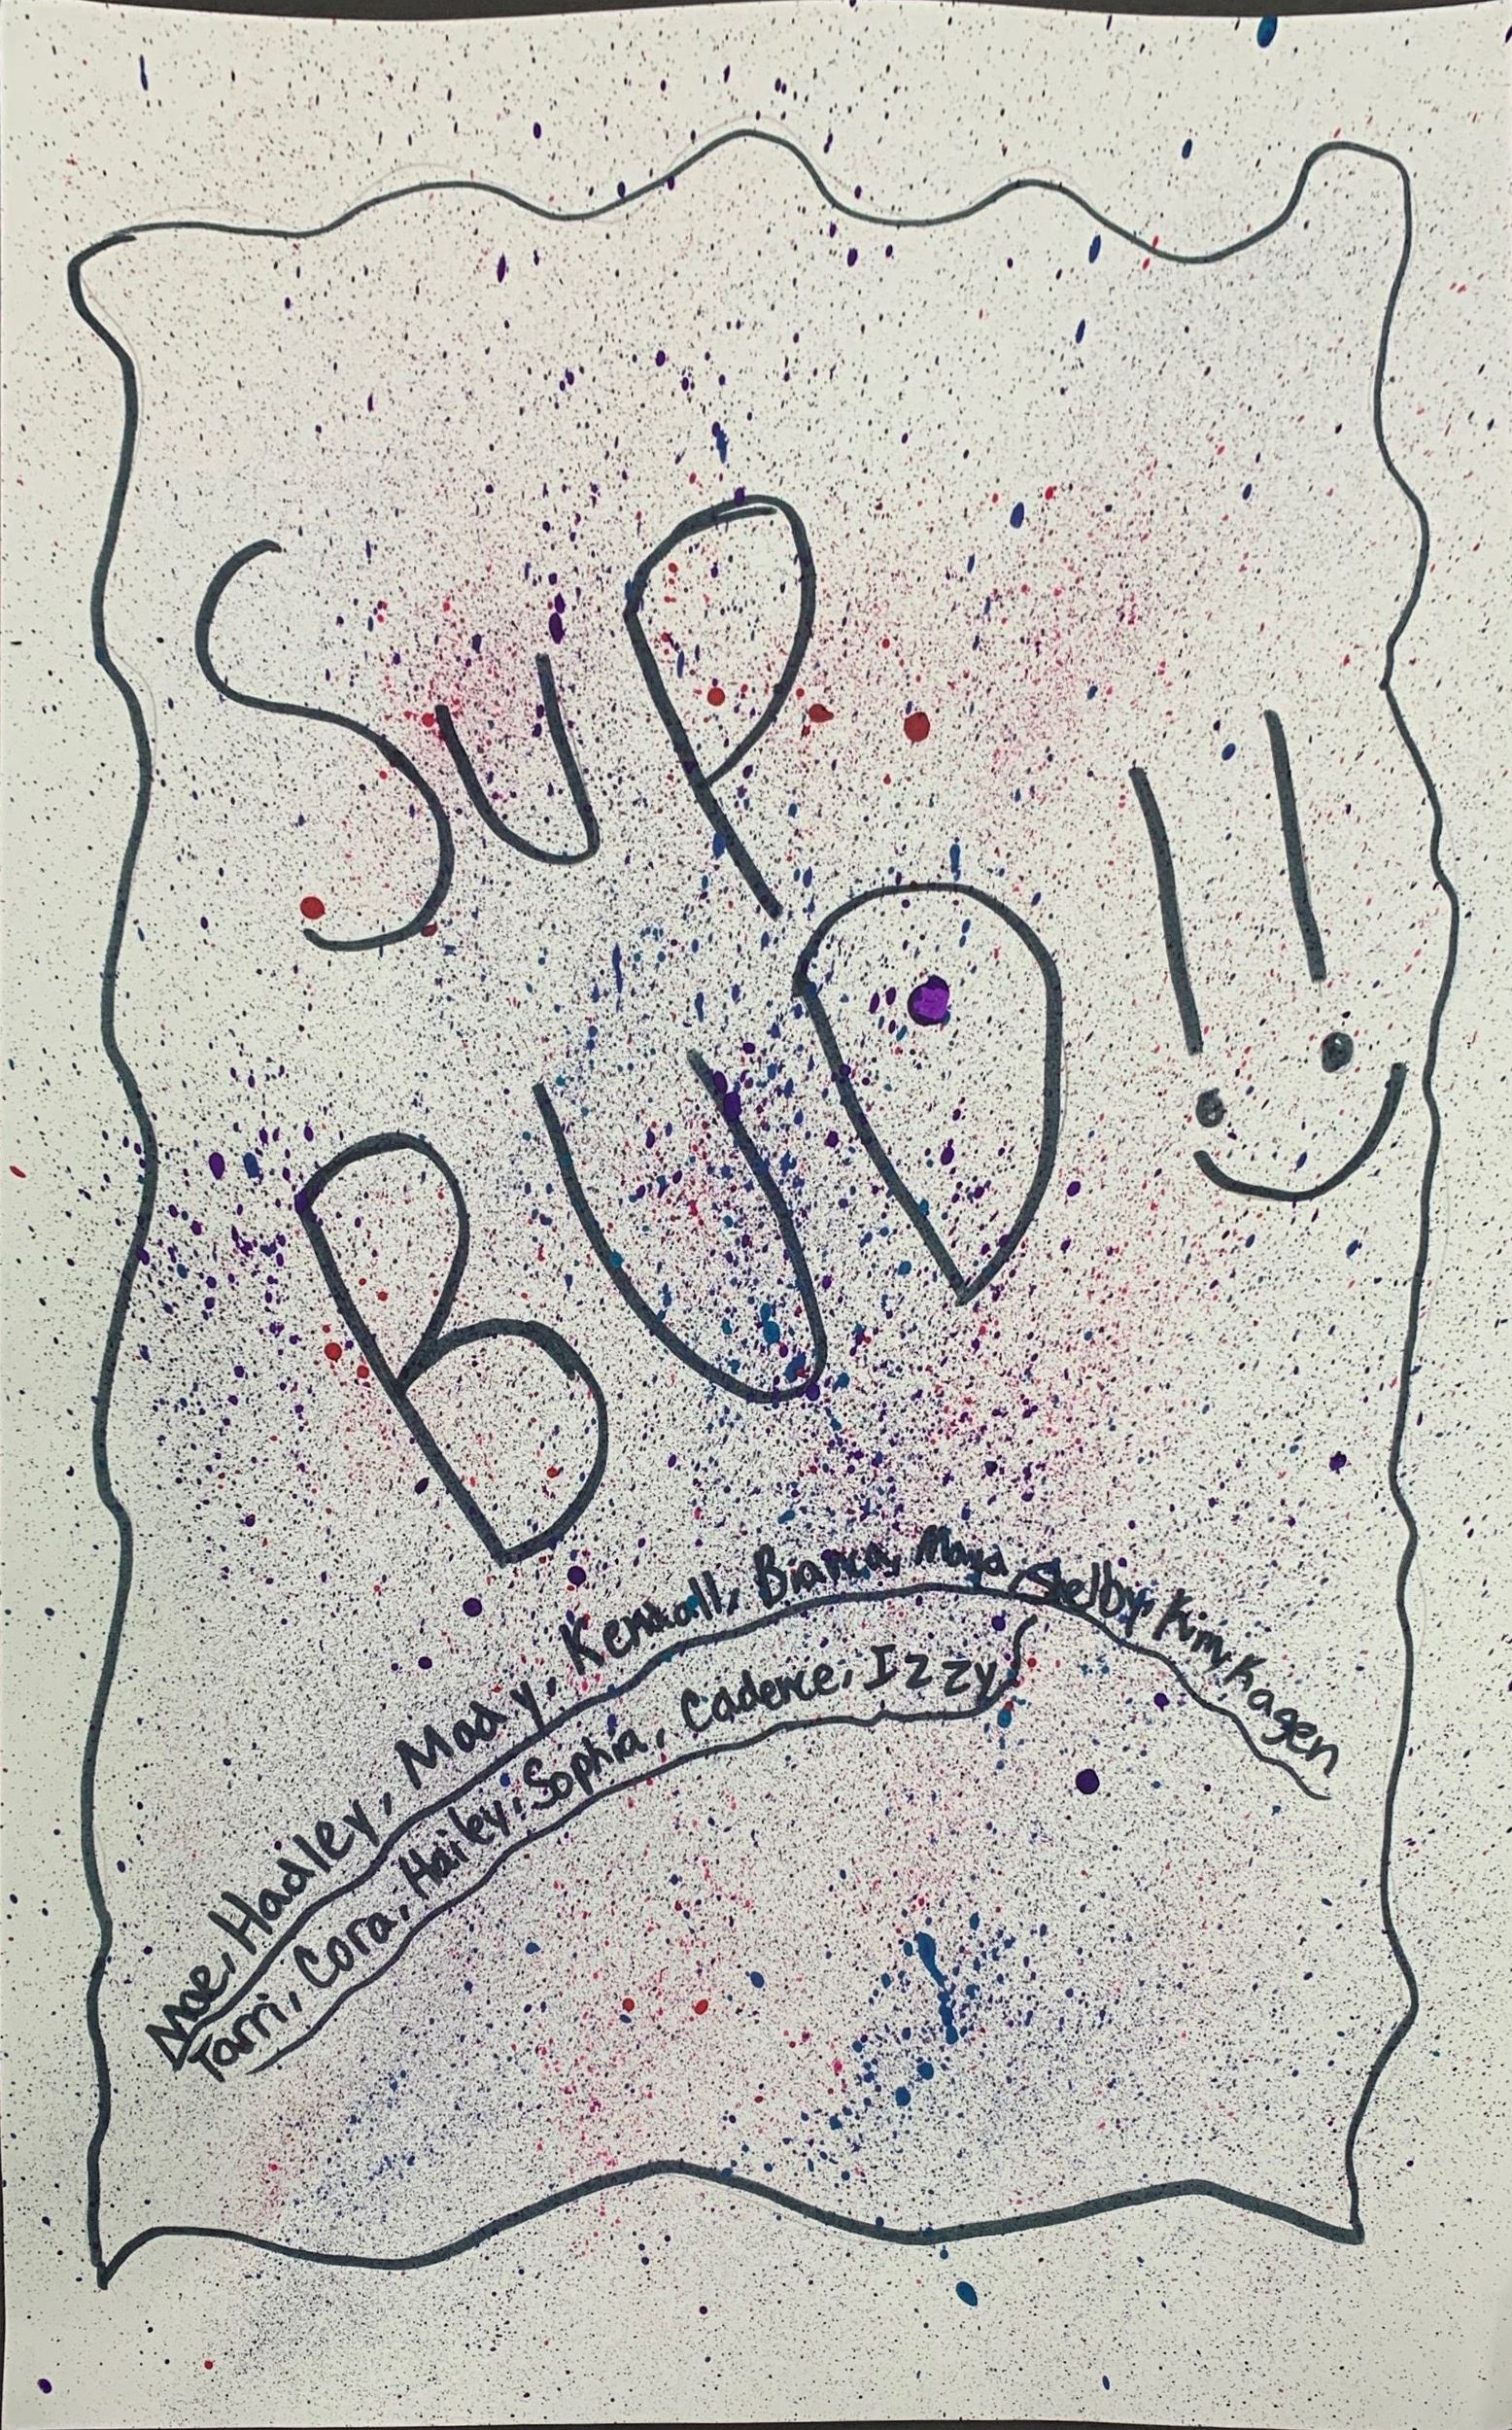 Sup
BUD!!
Mae, Hadley, Mady, Kendall, Bianca, Maya, Shelby, Kim, Kagen
Tarri, Cora, Hailey, Sophia, Cadence, Izzy